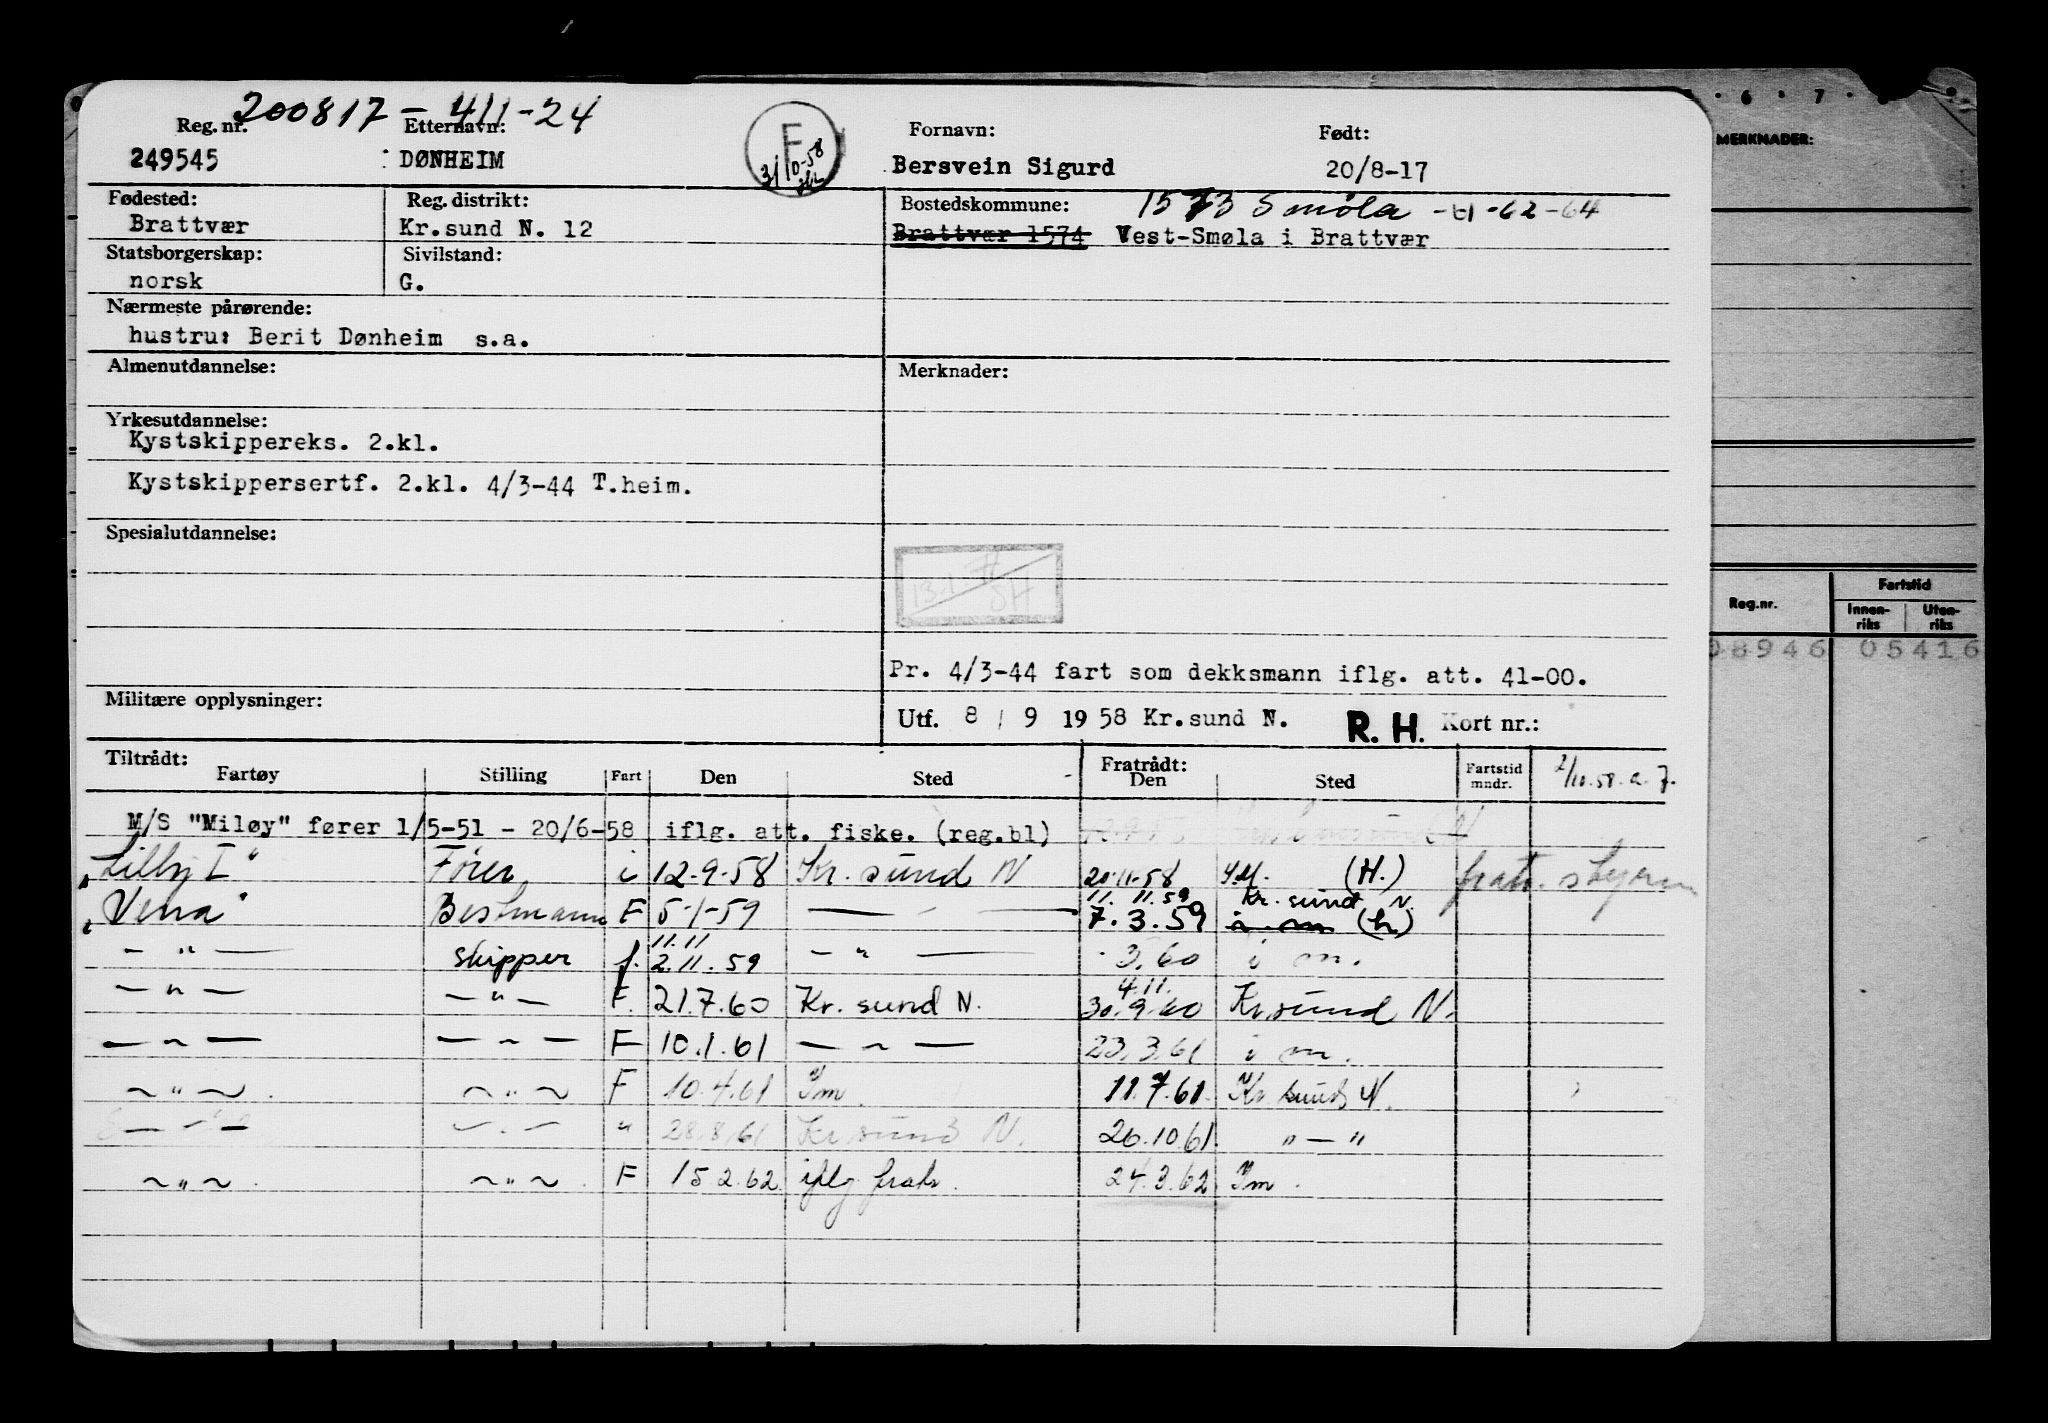 200817 - 411-24
Reg. nr. Etternavn: Fornavn: Født:
249545 DØNHEIM F 3/10-58 Bersvein Sigurd 20/8-17
Fødested: Reg. distrikt: Bostedskommune: 1573 Smøla -61-62-64
Brattvær Kr.sund N. 12 Brattvær 1574 Vest-Smøla i Brattvær
Statsborgerskap: Sivilstand:
norsk G.
Nærmeste pårørende:
hustru: Berit Dønheim s.a.
Almenutdannelse: Merknader:
Yrkesutdannelse:
Kystskippereks. 2.kl.
Kystskippersertf. 2.kl. 4/3-44 T.heim.
Spesialutdannelse:
13.1.71 SH
Pr. 4/3-44 fart som dekksmann iflg. att. 41-00.
Militære opplysninger: Utf. 8 / 9 19 58 Kr.sund N. R. H. Kort nr.:
Tiltrådt: Fratrådt:
Fartøy Stilling Fart Den Sted Den Sted Fartstid mndr. 2/10.58. a. 7.
M/S "Miløy" fører 1/5-51 - 20/6-58 iflg. att. fiske. (reg.bl)
"Lilly I" Fører i 12-9-58 Kr. sund N 20-11-58 I.M. (H.) fratr. styrm
"Vena" Bestmann F 5-1-59 — " — 11. 11. 59 7. 3. 59 Kr. sund N. i m (h)
— " — skipper f. 11.11 2.11.59 — " — 3.60 i m.
— " — — " — F. 21.7.60 Kr. sund N. 4.11. 30.9.60 Kr.sund N.
— " — — " — F 10.1.61 — " — 23.3.61 i m.
— " — — " — F 10.4.61 Im. 11.7.61. Kr sund N.
— " — — " — " 28.8.61 Kr.sund N. 26.10.61. " — "
— " — — " — F 15.2.62 iflg fratr. 24.3.62 Im.
6 · 7 ·
MERKNADER:
Reg.nr. Fartstid
Innen-riks Uten-riks
08946 05416